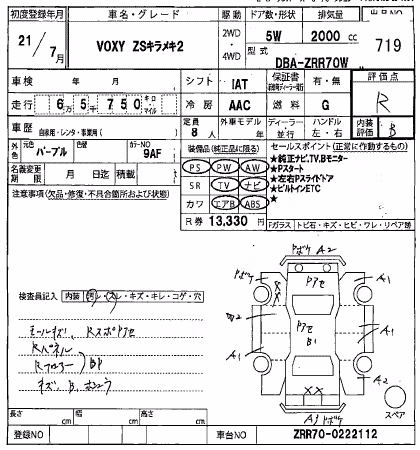 初度登録年月 車名・グレード 駆動 ドア数・形状 排気量 出品NO
21/7月 VOXY ZSキラメキ2 2WD・4WD 5W 2000 cc 719
型式 DBA-ZRR70W
車検 年 月 シフト IAT 保証書 有・無 評価点
走行 6万5千750 キロ・マイル 冷房 AAC 燃料 G R
車歴 自家用・レンタ・事業用( ) 定員 8人 外車モデル 年 ディーラー・並行 ハンドル 左・右 内装評価 B
外色 元色 パープル 色替 カラーNO 9AF 装備品(純正品に限る) セールスポイント(正常に作動するもの)
名義変更期限 月 日迄 積載
PS PW AW
SR TV ナビ
カワ エアB ABS
R券 13,330円
★純正ナビ,TV,Bモニター
★Pスタート
★左右Pスライドドア
★ビルトインETC
★
注意事項(欠品・修復・不具合箇所および状態)
Fガラス トビ石・キズ・ヒビ・ワレ・リペア跡
検査員記入 内装 ・スレ・キズ・キレ・コゲ・穴
A2
A1
A1
A1
A1
B1
A2
XX
スペア
Rパネル
BP
長さ cm 幅 cm 高さ cm
登録NO 車台NO ZRR70-0222112